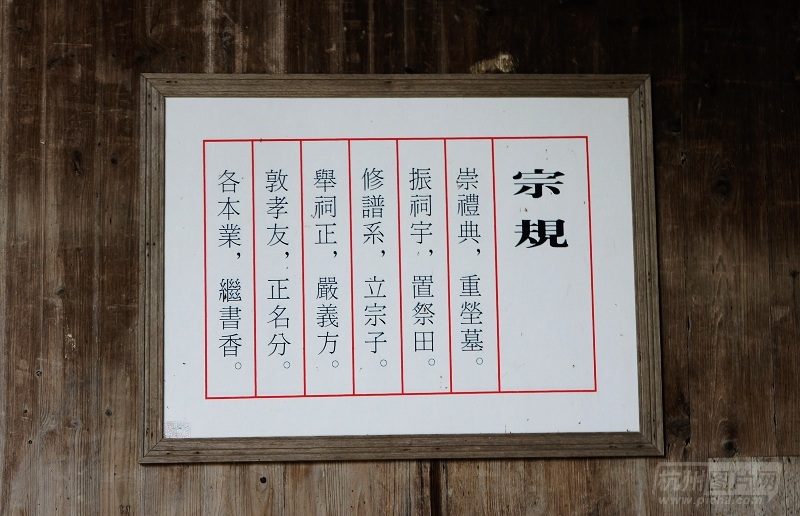 宗規
崇禮典，重塋墓。
振祠宇，置祭田。
修譜系，立宗子。
舉祠正，嚴義方。
敦孝友，正名分。
各本業，繼書香。